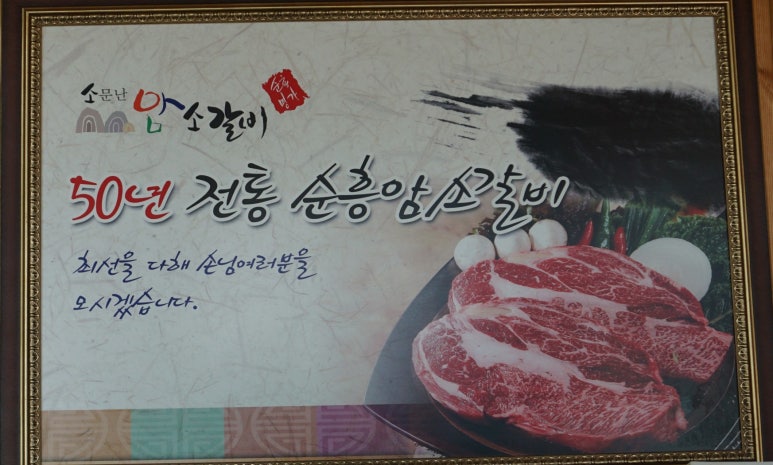 소문난 암소갈비
순흥
명가
50년 전통 순흥암소갈비
최선을 다해 손님여러분을
모시겠습니다.